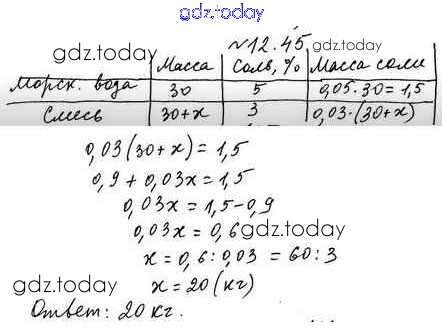 gdz.today
№12.45
gdz.today gdz.today
Масса Соль, % Масса соли
Морск. вода 30 5 0,05·30=1,5
Смесь 30+x 3 0,03·(30+x)
0,03(30+x)=1,5
0,9+0,03x=1,5
0,03x=1,5-0,9
gdz.today
0,03x=0,6
x=0,6:0,03=60:3
gdz.today
x=20(кг)
gdz.today
Ответ: 20 кг.